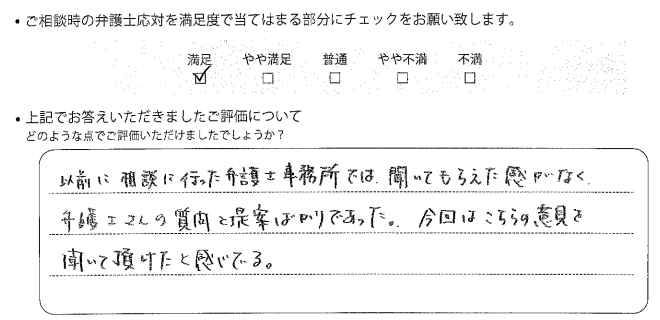 ・ご相談時の弁護士応対を満足度で当てはまる部分にチェックをお願い致します。
満足 やや満足 普通 やや不満 不満
☑ □ □ □ □
・上記でお答えいただきましたご評価について
どのような点でご評価いただけましたでしょうか？
以前に相談に行った弁護士事務所では、聞いてもらえた感がなく、
弁護士さんの質問と提案ばかりであった。今回はこちらの意見を
聞いて頂けたと感じている。